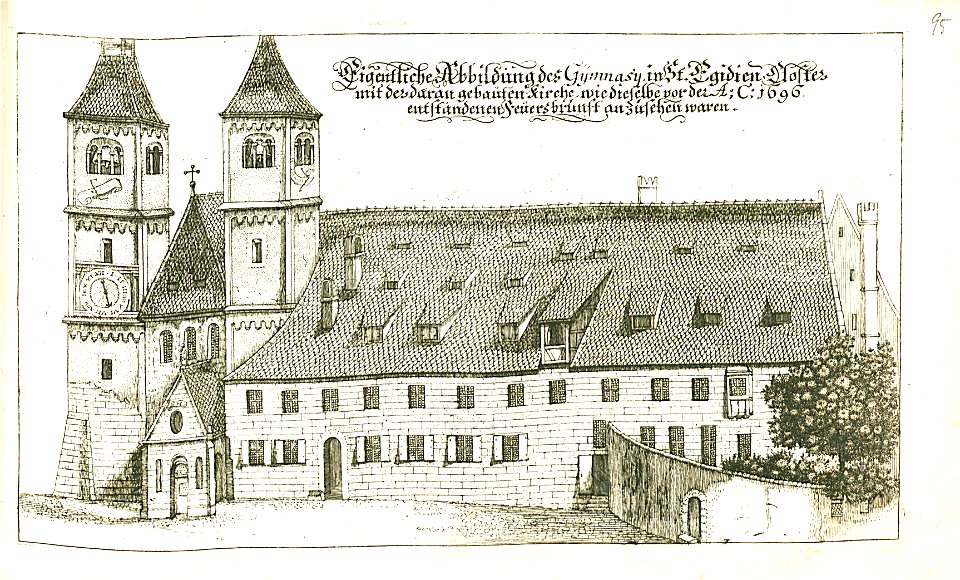 95
Eigentliche Abbildung des Gÿmnasÿ, in St. Egidien Closter
mit der daran gebauten Kirche, wie dieselbe vor der A; C: 1696.
entstandenen Feuersbrunst anzusehen waren.